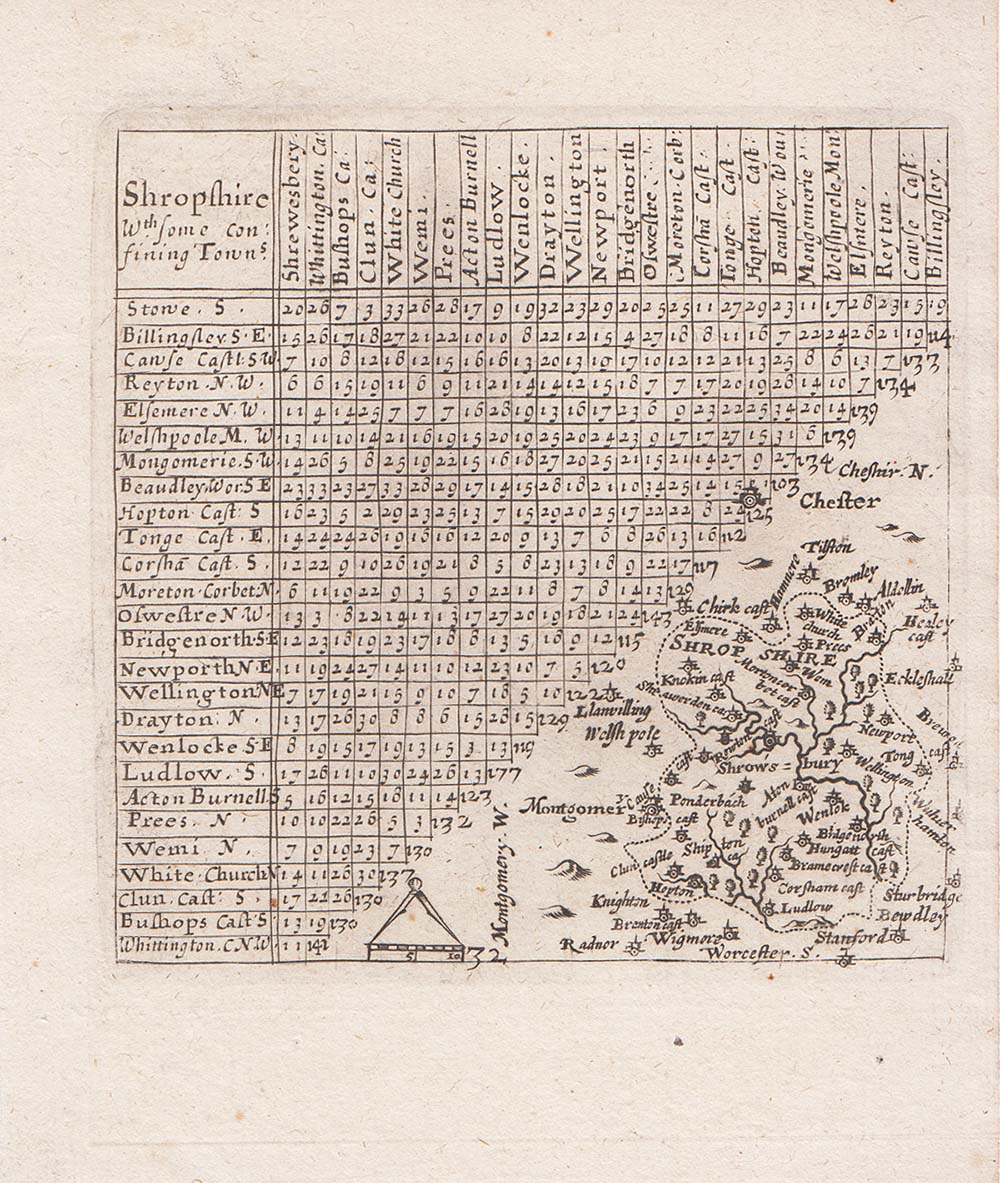 Shropshire
Wth some con:
fining Towns.
Shrewesbery.
Whittington. Ca:
Bushops Ca:
Clun. Ca:
White Church
Wemi.
Prees.
Acton Burnell
Ludlow.
Wenlocke.
Drayton.
Wellington
Newport.
Bridgenorth
Oswestre
Moreton. Corb:
Corshā Cast.
Tonge Cast.
Hopton. Cast:
Beaudley. Wou:
Mongomerie
Welshpoole Mon:
Elsmere.
Reyton.
Cause Cast:
Billingsley.
Stowe. S. 20 26 7 3 33 26 28 17 9 19 32 23 29 20 25 25 11 27 29 23 11 17 28 23 15 19
Billingsley. S. E. 15 26 17 18 27 21 22 10 10 8 22 12 15 4 27 18 8 11 16 7 22 24 26 21 19 114
Cause Castl: S W 7 10 8 12 18 12 15 16 16 13 20 13 19 17 10 12 12 21 13 25 8 6 13 7 133
Reyton. N. W. 6 6 15 19 11 6 9 11 21 14 14 12 15 18 7 7 17 20 19 28 14 10 7 134
Elsemere N. W. 11 4 14 25 7 7 7 16 28 19 13 16 17 23 6 9 23 22 25 34 20 14 139
Welshpoole M. W. 13 11 10 14 21 16 19 15 20 19 25 20 24 23 9 17 17 27 15 31 6 139
Mongomerie. S. W. 14 26 5 8 25 19 22 15 16 18 27 20 25 21 15 21 14 27 9 27 134
Beaudley. Wor: S E 23 33 23 27 33 28 29 17 14 15 28 18 21 10 34 25 14 15 103
Hopton Cast: S 16 23 5 2 29 23 25 13 7 15 29 20 25 17 22 22 8 24 125
Tonge Cast. E. 14 24 24 26 19 16 16 12 20 9 13 7 6 8 26 13 16 112
Corshā Cast. S. 12 22 9 10 26 19 21 8 5 8 23 13 18 9 22 17 117
Moreton. Corbet. N 6 11 19 22 9 3 5 9 22 11 8 7 8 14 13 129
Oswestre N. W. 13 3 8 22 14 11 13 17 27 20 19 18 21 24 143
Bridgenorth. S. E 12 23 18 19 23 17 18 8 13 5 18 9 12 115
Newporth. N. E. 11 19 24 27 14 11 10 12 23 10 7 5 120
Wellington N E 7 17 19 21 15 9 10 7 18 5 10 122
Drayton. N. 13 17 26 30 8 8 6 15 28 15 129
Wenlocke S E 8 19 15 17 19 13 15 3 13 119
Ludlow. S. 17 26 11 10 30 24 26 13 177
Acton Burnell. S 5 16 12 15 18 11 14 123
Prees. N. 10 10 22 26 5 3 132
Wemi. N. 7 9 19 23 7 130
White Church N 14 11 26 30 137
Clun. Cast: S. 17 22 26 130
Bushops Cast S 13 19 130
Whittington. C. N. W. 11 142
5 10
32
Montgomery. W.
Cheshir. N.
Chester
Tilston
Hanmere
Bromley
Aldellin
Chirk cast
White church
Healey cast
Elsmere
Prees
SHROP SHIRE
Wem
Knokin cast
Morton corbet cast
Eckleshall
Shrawerden cast
Llanvilling
Welsh pole
Newport
Tong cast
Shrows=bury
Wellington
Cause cast
Montgomer
Ponderbach
Aton burnell cast
Wenlok
Bishops cast
Bridgenorth
Shipton
Hungatt cast
Clun castle
Bramcrest cast
Hopton
Corsham cast
Sturbridge
Knighton
Ludlow
Bewdley
Bremton cast
Radnor
Wigmore
Stanford
Worcester. S.